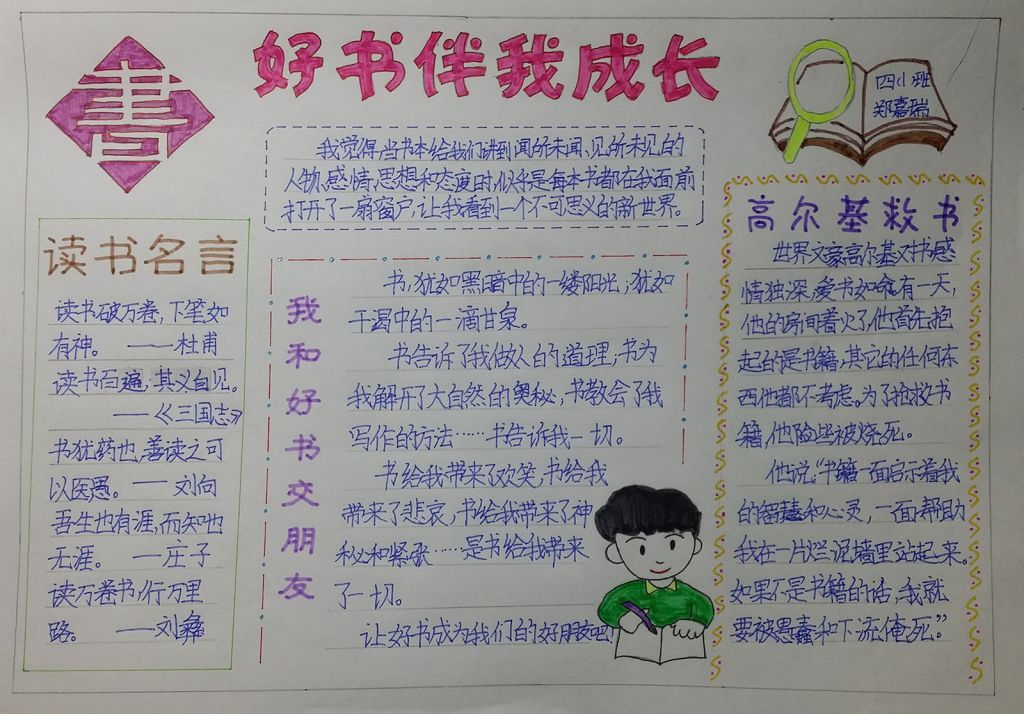 書
好书伴我成长
四(1)班
郑嘉瑞
我觉得,当书本给我们讲到闻所未闻、见所未见的
人物、感情、思想和态度时,似乎是每本书都在我面前
打开了一扇窗户,让我看到一个不可思义的新世界。
读书名言
读书破万卷,下笔如
有神。 ——杜甫
读书百遍,其义自见。
——《三国志》
书犹药也,善读之可
以医愚。——刘向
吾生也有涯,而知也
无涯。 —庄子
读万卷书,行万里
路。 ——刘彝
我和好书交朋友
书,犹如黑暗中的一缕阳光;犹如
干渴中的一滴甘泉。
书告诉了我做人的道理;书为
我解开了大自然的奥秘,书教会了我
写作的方法……书告诉我一切。
书给我带来了欢笑,书给我
带来了悲哀,书给我带来了神
秘和紧张……是书给我带来
了一切。
让好书成为我们的好朋友吧!
高尔基救书
世界文豪高尔基对书感
情独深,爱书如命,有一天,
他的房间着火了,他首先抱
起的是书籍,其它的任何东
西他都不考虑。为了抢救书
籍,他险些被烧死。
他说:“书籍一面启示着我
的智慧和心灵,一面帮助
我在一片烂泥墙里站起来。
如果不是书籍的话,我就
要被愚蠢和下流俺死。”